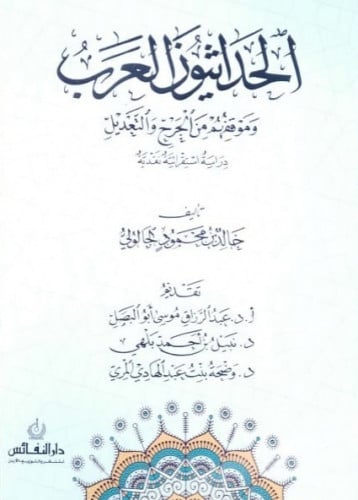 الحداثيون العرب
وموقفهم من الجرح والتعديل
دراسة استقرائية نقدية
تأليف
خالد بن محمود الحالولي
تقديم
أ. د. عبد الرزاق موسى أبو البصل
د. نبيل بن أحمد بلهي
د. وضحة بنت عبد الهادي المري
دار النفائس
للنشر والتوزيع - الأردن